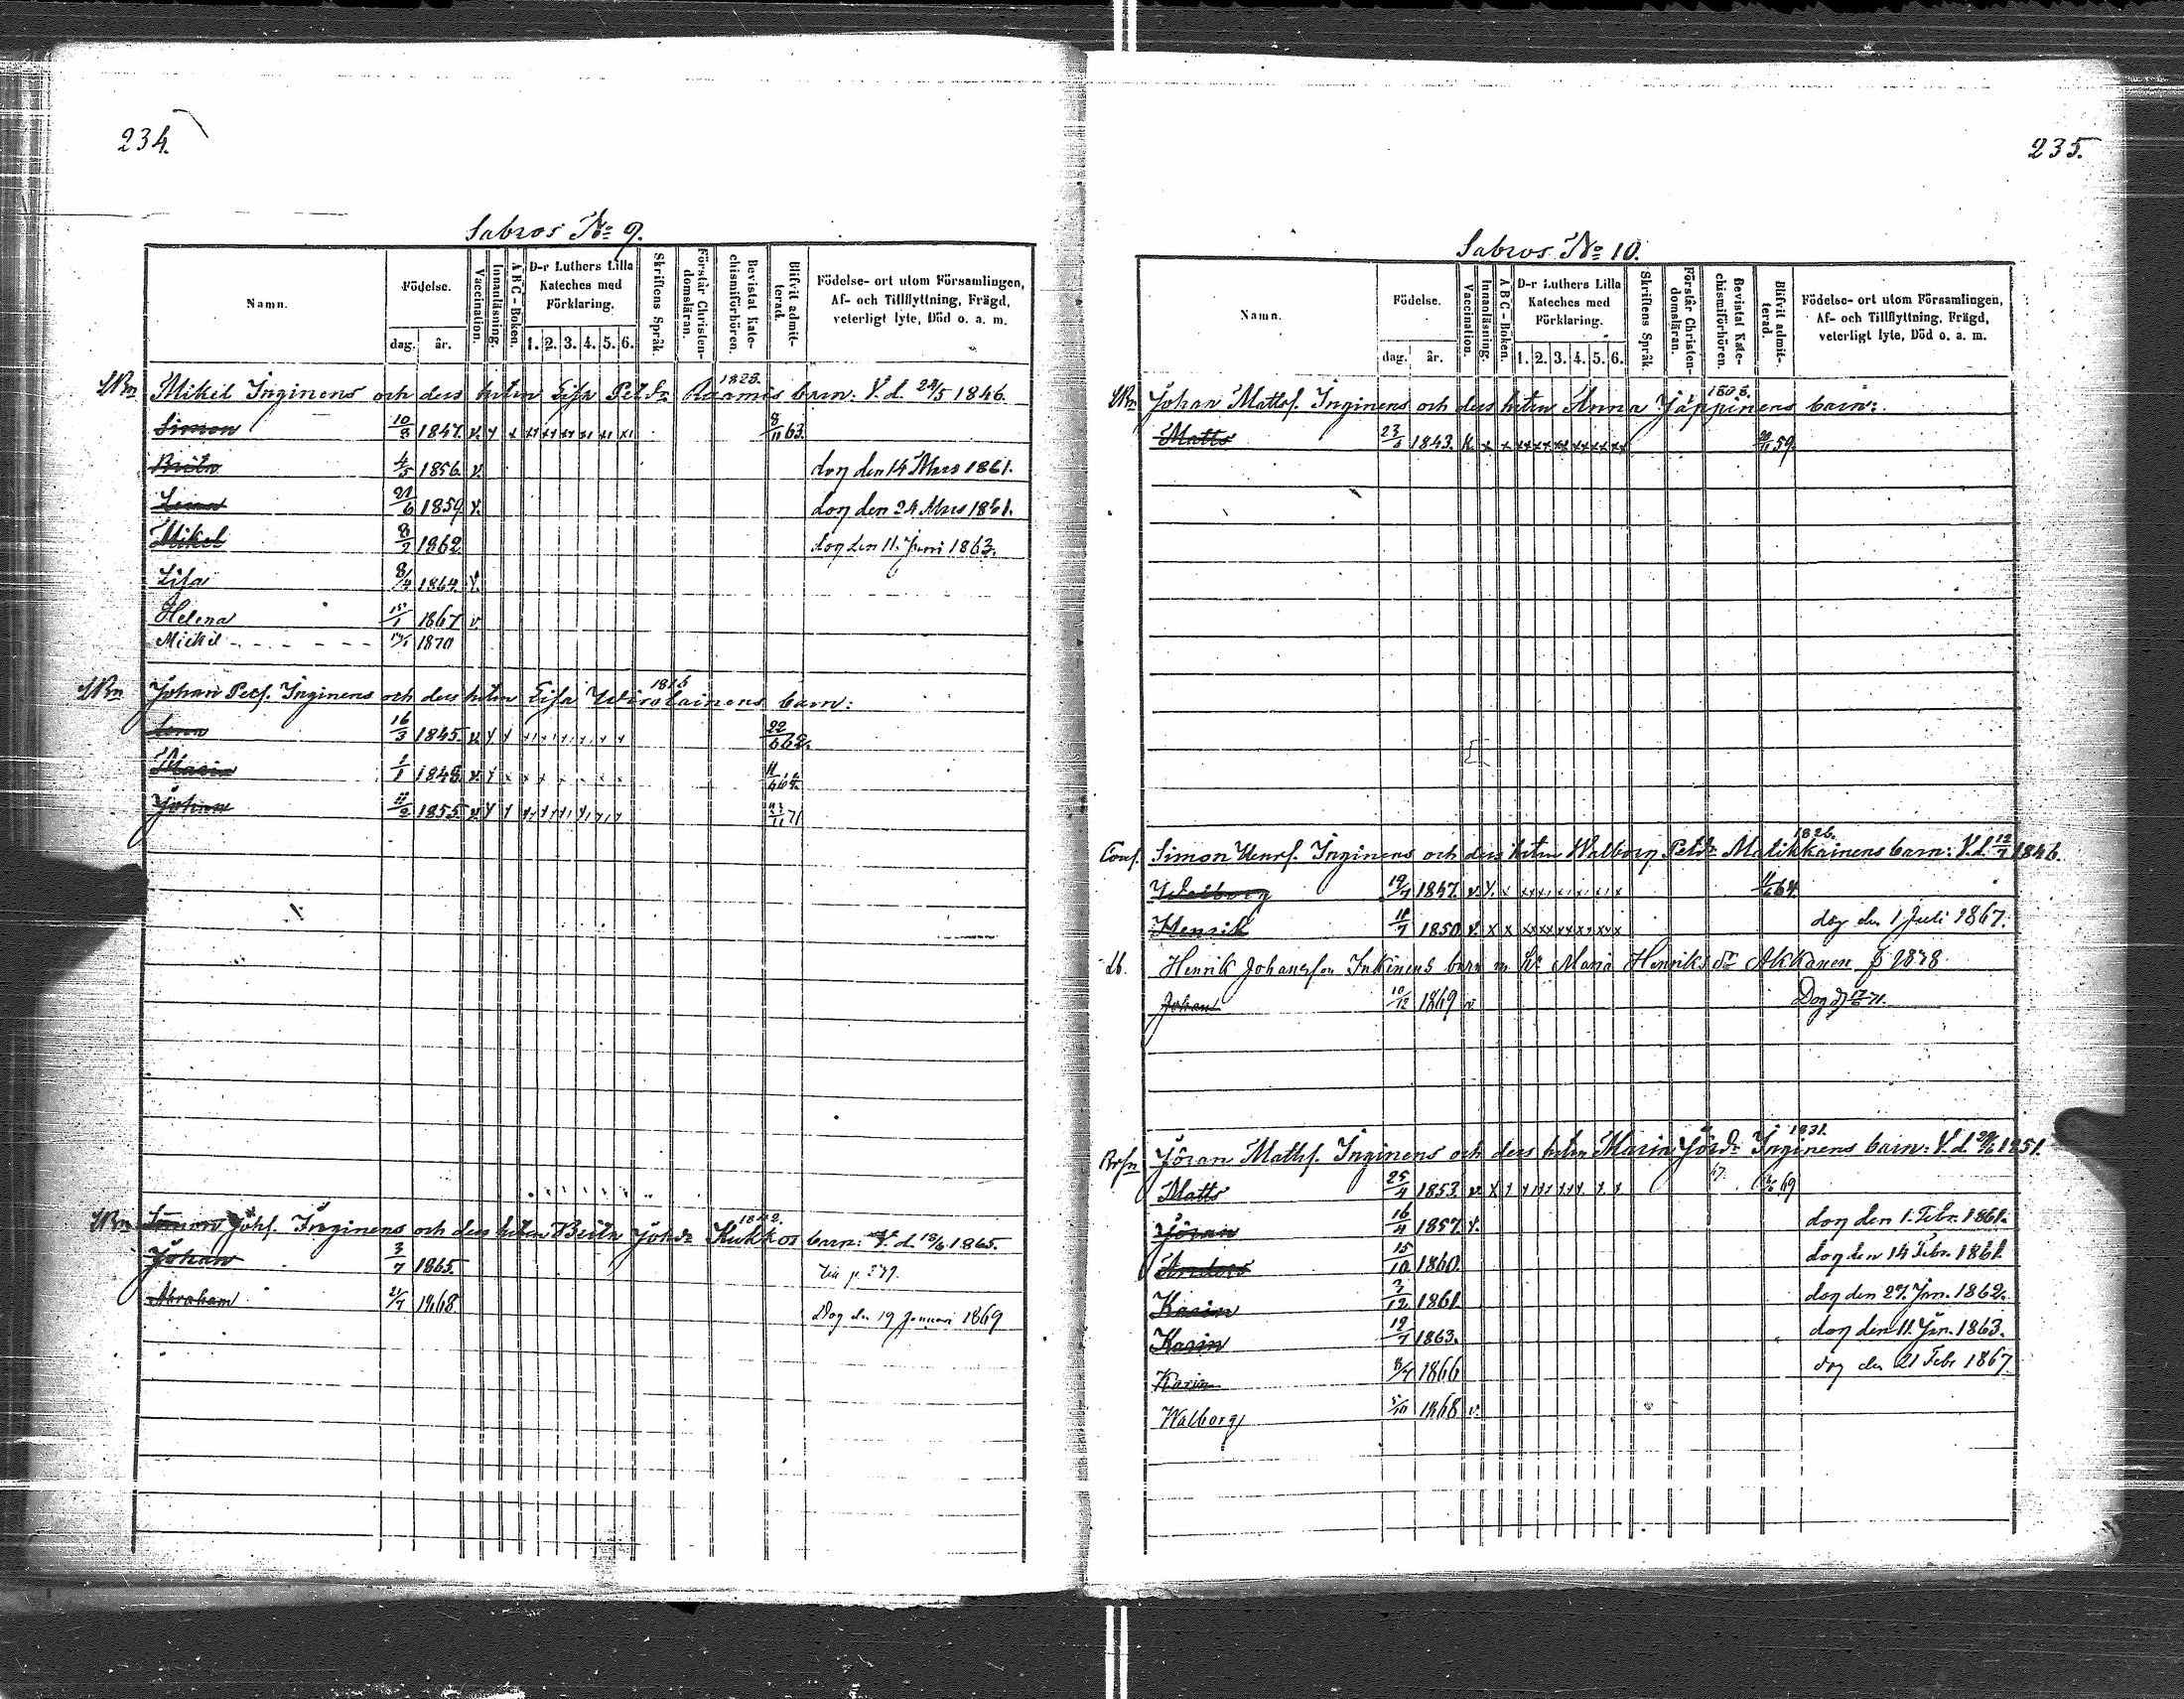 234.
Sabros No 9.
Namn. Födelse. Vaccination. Innanläsning. ABC-Boken. D-r Luthers Lilla Kateches med Förklaring. Skriftens Språk. Förstår Christendomsläran. Bevistat Katechismiförhören. Blifvit admitterad. Födelse-ort utom Församlingen, Af- och Tillflyttning, Frägd, veterligt lyte, Död o. a. m.
dag. år. 1. 2. 3. 4. 5. 6.
1828.
Mikel Inginens och dess hstru Lisa Pet.dr Raamis barn: V. d. 24/5 1846.
Simon 10/8 1847. v. x x xx xx xx xx xx xx 8/11 63.
Brita 4/5 1856. v. dog den 14 Mars 1861.
Lena 21/6 1859. v. dog den 24 Mars 1861.
Mikel 8/7 1862 dog den 11. Juni 1863.
Lisa 8/4 1864. v.
Helena 15/1 1867 v.
Mickel 1870
1815
Johan Pers. Inginens och dess hstru Lisa Wirolainens barn:
Lena 16/3 1845. v. 22/6 62.
Maria 1/1 1848. v. 11/6 64.
Johan 11/2 1855. v. 23/11 71
1842.
Simon Johs. Inginens och dess hstru Brita Joh.dr Kukkos barn: V. d. 18/6 1865.
Johan 3/7 1865.
Abraham 21/7 1868 Dog den 19 Januari 1869
235.
Sabros No 10.
Namn. Födelse. Vaccination. Innanläsning. ABC-Boken. D-r Luthers Lilla Kateches med Förklaring. Skriftens Språk. Förstår Christendomsläran. Bevistat Katechismiförhören. Blifvit admitterad. Födelse-ort utom Församlingen, Af- och Tillflyttning, Frägd, veterligt lyte, Död o. a. m.
dag. år. 1. 2. 3. 4. 5. 6.
Johan Mattsf. Inginens och dess hstru Anna Jäppinens barn:
Matts 23/6 1843. v. x x xx xx xx xx xx xx 59.
1826.
Conf. Simon Henrs. Inginens och dess hstru Walborg Petdr Malikkainens barn: V. d. 12/7 1846.
Walborg 19/7 1847. v. 64.
Henrik 11/7 1850 v. x x xx xx xx xx xx xx dog den 1 Juli 1867.
Henrik Johansson Inkinens barn m. h. Maria Henriksdr Akkanen
Johan 10/12 1869 v Dog d. 71.
1831.
Jöran Mattsf. Inginens och dess hstru Maria Jördr Inginens barn: V. d. 1851.
Matts 25/4 1853. v. 69
Jöran 16/4 1857. v. dog den 1. Febr. 1861.
Anders 15/10 1860. dog den 14 Febr. 1861.
Karin 2/12 1861. dog den 27. Jan. 1862.
Karin 19/7 1863. dog den 11. Jan. 1863.
Karin 8/4 1866 dog den 21 Febr 1867.
Walborg 5/10 1868 v.